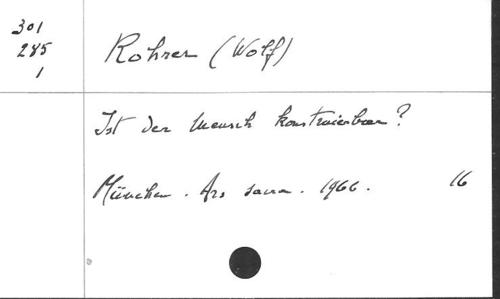 301
285
1
Rohrer (Wolf)
Ist der Mensch konstruierbar?
München. Ars sacra. 1966. 16